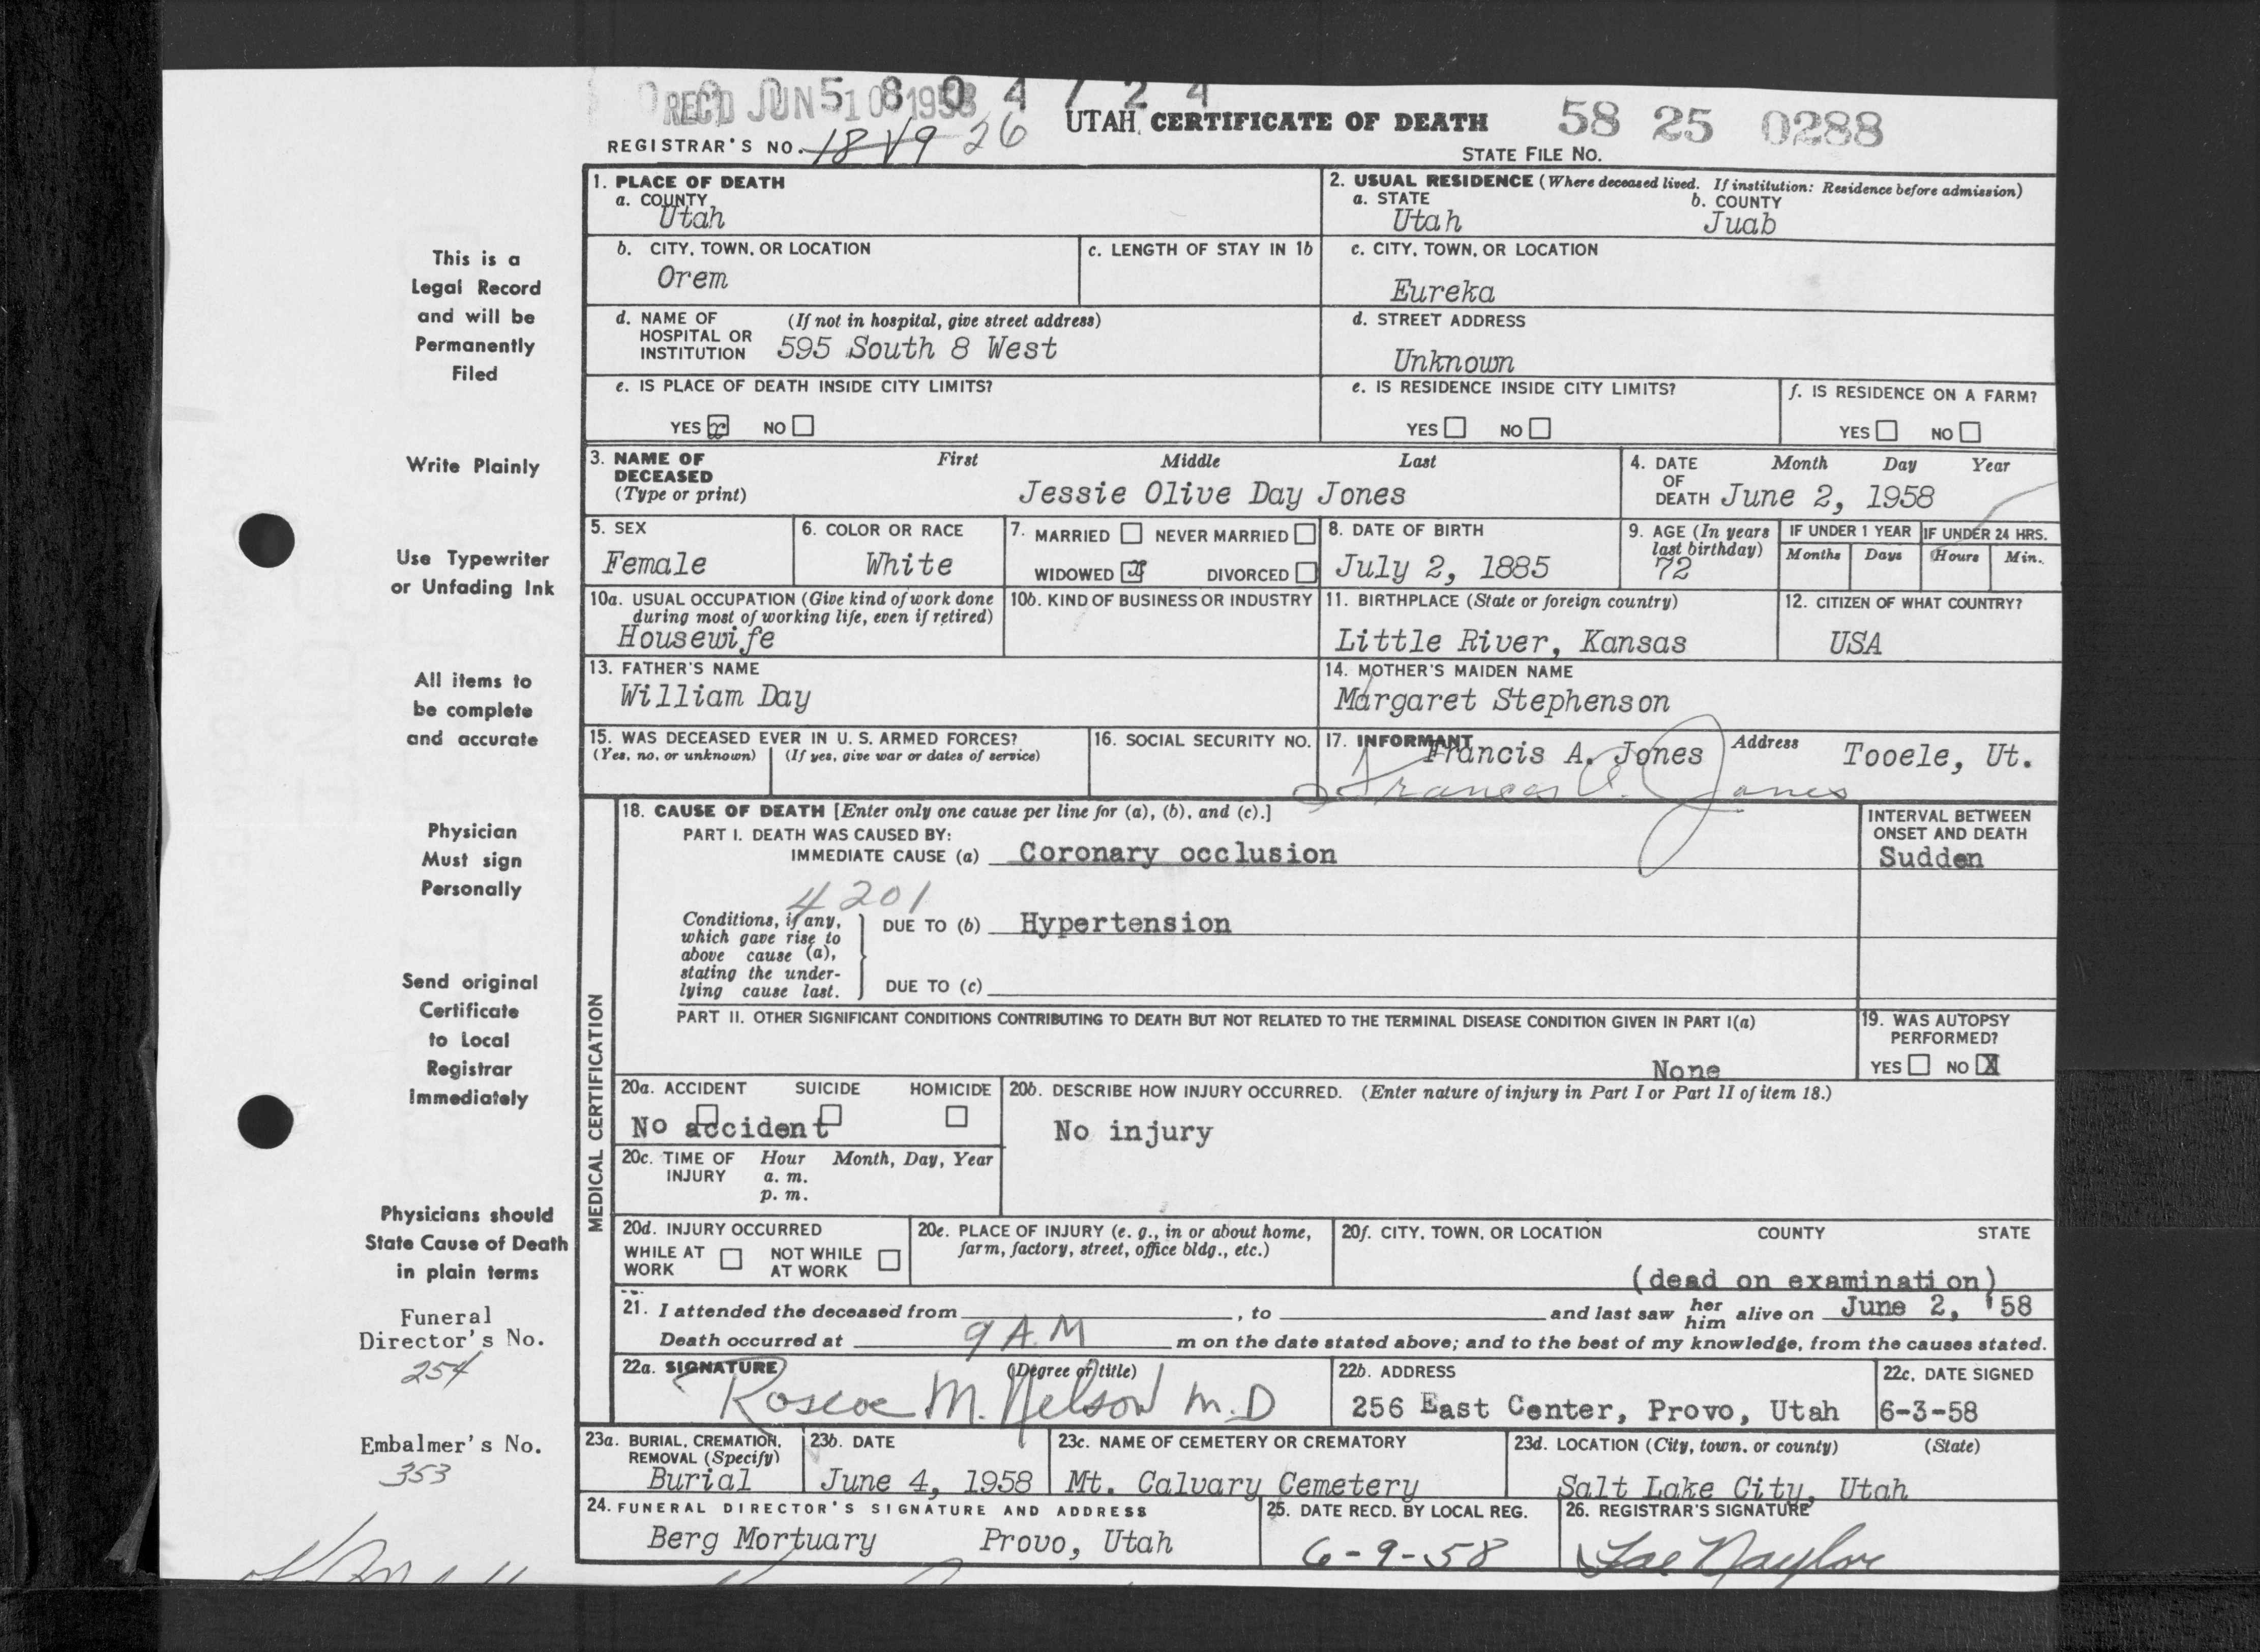 REC'D JUN 10 1958
5 8 0 4 7 2 4
REGISTRAR'S NO. 26
UTAH CERTIFICATE OF DEATH
58 25 0288
STATE FILE NO.
This is a
Legal Record
and will be
Permanently
Filed
Write Plainly
Use Typewriter
or Unfading Ink
All items to
be complete
and accurate
Physician
Must sign
Personally
Send original
Certificate
to Local
Registrar
Immediately
Physicians should
State Cause of Death
in plain terms
Funeral
Director's No.
254
Embalmer's No.
353
1. PLACE OF DEATH
a. COUNTY
Utah
2. USUAL RESIDENCE (Where deceased lived. If institution: Residence before admission)
a. STATE b. COUNTY
Utah Juab
b. CITY, TOWN, OR LOCATION c. LENGTH OF STAY IN 1b
Orem
c. CITY, TOWN, OR LOCATION
Eureka
d. NAME OF (If not in hospital, give street address)
HOSPITAL OR
INSTITUTION 595 South 8 West
d. STREET ADDRESS
Unknown
e. IS PLACE OF DEATH INSIDE CITY LIMITS?
YES x NO
e. IS RESIDENCE INSIDE CITY LIMITS?
YES NO
f. IS RESIDENCE ON A FARM?
YES NO
3. NAME OF First Middle Last
DECEASED
(Type or print) Jessie Olive Day Jones
4. DATE Month Day Year
OF
DEATH June 2, 1958
5. SEX
Female
6. COLOR OR RACE
White
7. MARRIED NEVER MARRIED
WIDOWED x DIVORCED
8. DATE OF BIRTH
July 2, 1885
9. AGE (In years
last birthday)
72
IF UNDER 1 YEAR IF UNDER 24 HRS.
Months Days Hours Min.
10a. USUAL OCCUPATION (Give kind of work done
during most of working life, even if retired)
Housewife
10b. KIND OF BUSINESS OR INDUSTRY
11. BIRTHPLACE (State or foreign country)
Little River, Kansas
12. CITIZEN OF WHAT COUNTRY?
USA
13. FATHER'S NAME
William Day
14. MOTHER'S MAIDEN NAME
Margaret Stephenson
15. WAS DECEASED EVER IN U. S. ARMED FORCES?
(Yes, no, or unknown) (If yes, give war or dates of service)
16. SOCIAL SECURITY NO.
17. INFORMANT Address
Francis A. Jones Tooele, Ut.
Frances A. Jones
MEDICAL CERTIFICATION
18. CAUSE OF DEATH [Enter only one cause per line for (a), (b), and (c).]
PART I. DEATH WAS CAUSED BY:
IMMEDIATE CAUSE (a) Coronary occlusion
INTERVAL BETWEEN
ONSET AND DEATH
Sudden
4201
Conditions, if any,
which gave rise to
above cause (a),
stating the under-
lying cause last.
DUE TO (b) Hypertension
DUE TO (c)
PART II. OTHER SIGNIFICANT CONDITIONS CONTRIBUTING TO DEATH BUT NOT RELATED TO THE TERMINAL DISEASE CONDITION GIVEN IN PART I(a)
None
19. WAS AUTOPSY
PERFORMED?
YES NO X
20a. ACCIDENT SUICIDE HOMICIDE
No accident
20b. DESCRIBE HOW INJURY OCCURRED. (Enter nature of injury in Part I or Part II of item 18.)
No injury
20c. TIME OF Hour Month, Day, Year
INJURY a. m.
p. m.
20d. INJURY OCCURRED
WHILE AT NOT WHILE
WORK AT WORK
20e. PLACE OF INJURY (e. g., in or about home,
farm, factory, street, office bldg., etc.)
20f. CITY, TOWN, OR LOCATION COUNTY STATE
(dead on examination)
21. I attended the deceased from , to and last saw her him alive on June 2, '58
Death occurred at 9 A.M m on the date stated above; and to the best of my knowledge, from the causes stated.
22a. SIGNATURE (Degree or title)
Roscoe M. Nelson M.D
22b. ADDRESS
256 East Center, Provo, Utah
22c. DATE SIGNED
6-3-58
23a. BURIAL, CREMATION,
REMOVAL (Specify)
Burial
23b. DATE
June 4, 1958
23c. NAME OF CEMETERY OR CREMATORY
Mt. Calvary Cemetery
23d. LOCATION (City, town, or county) (State)
Salt Lake City, Utah
24. FUNERAL DIRECTOR'S SIGNATURE AND ADDRESS
Berg Mortuary Provo, Utah
25. DATE RECD. BY LOCAL REG.
6-9-58
26. REGISTRAR'S SIGNATURE
Fae Naylor